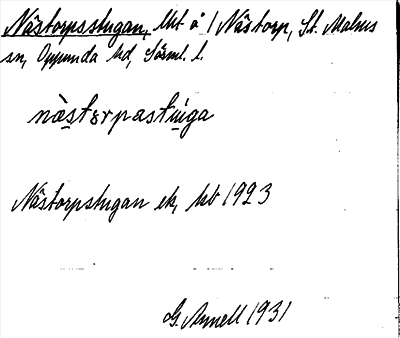 Nästorpsstugan, lht å 1 Nästorp, St. Malms
sn, Oppunda hd, Sörml. l.
näst𝑜rpastuga
Nästorpstugan ek, hb 1923
1931